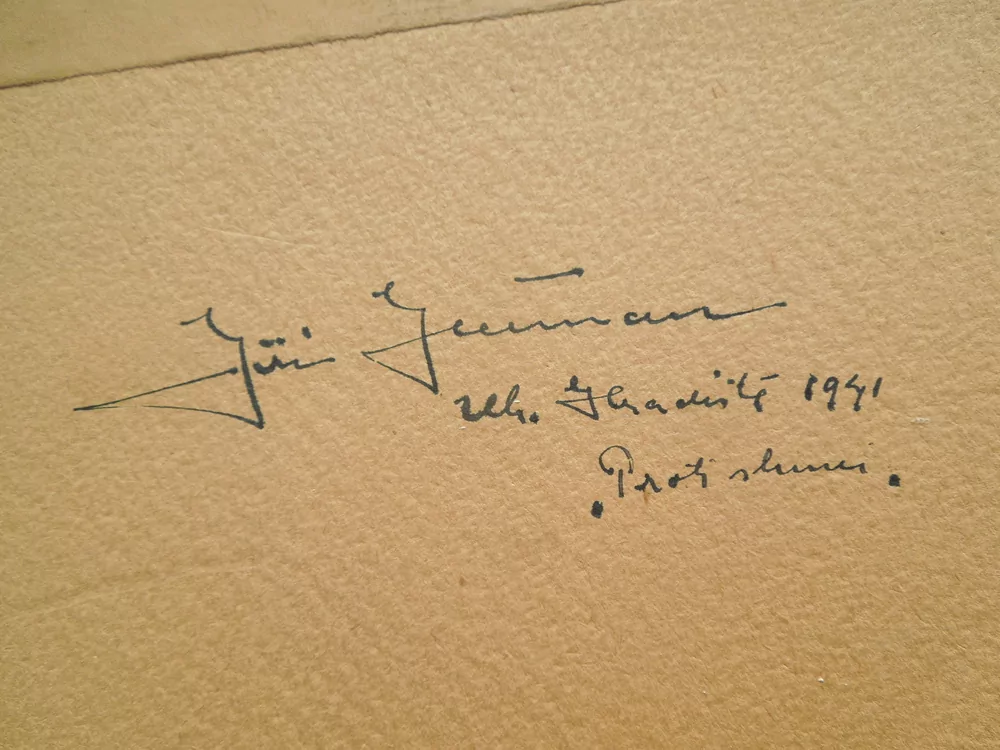 Jiří
Uh. Hradiště 1941
„Proti slunci"